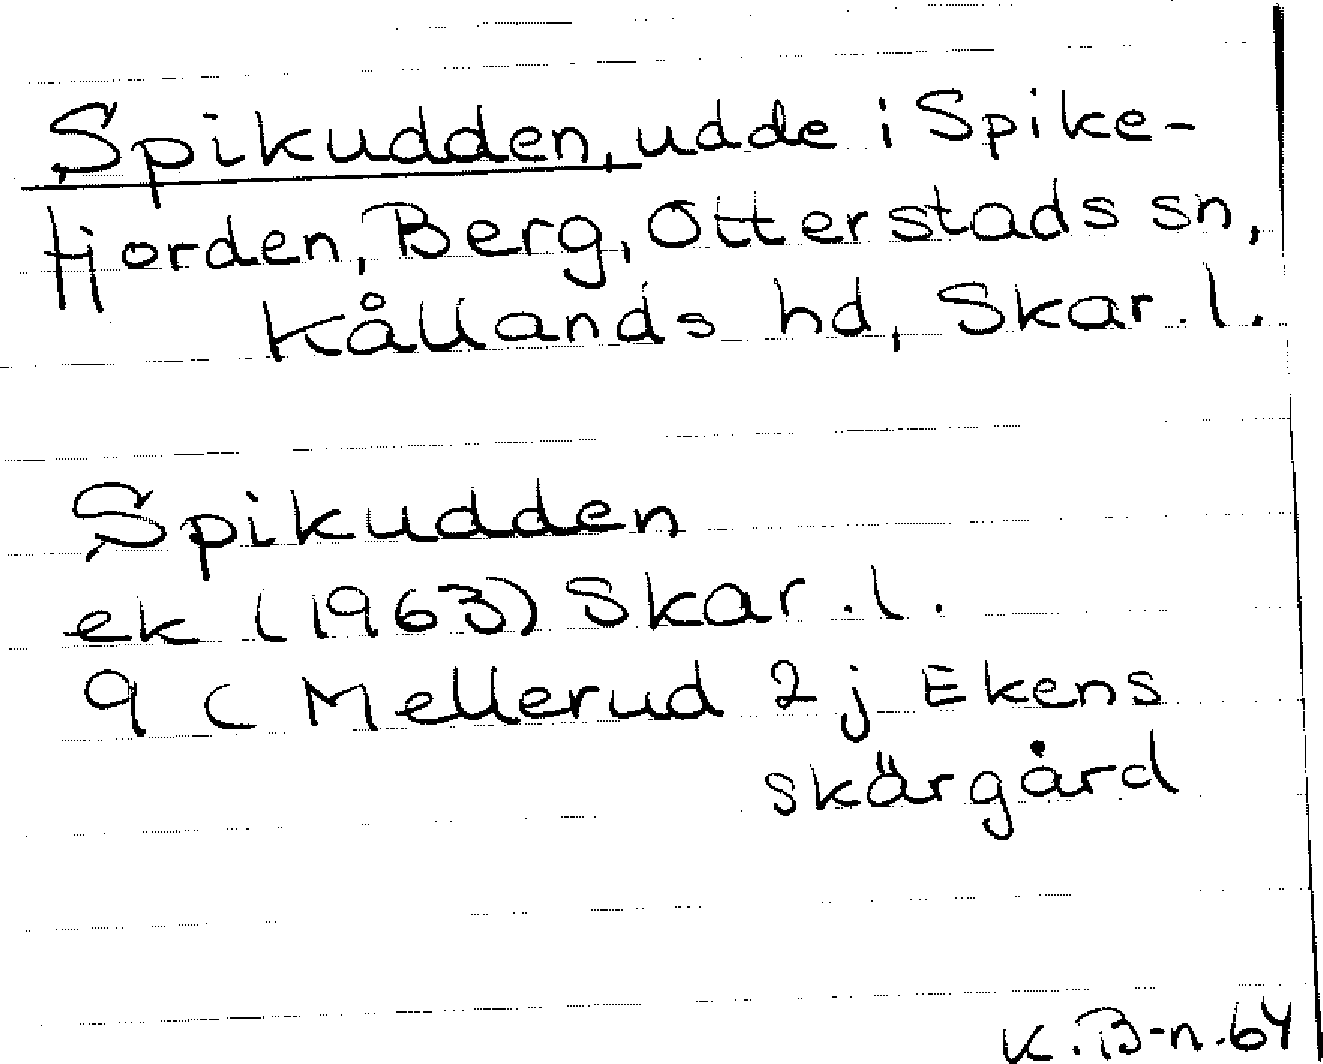 Spikudden, udde i Spike-
fjorden, Berg, Otterstads sn,
Kållands hd, Skar. l.
Spikudden
ek (1963) Skar. l.
9 C Mellerud 2 j Ekens
skärgård
K. B-n. 64